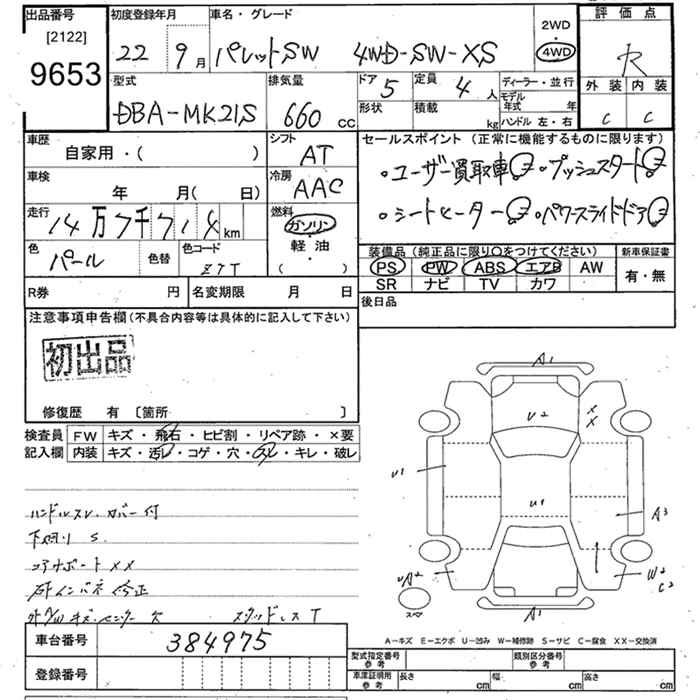 出品番号 初度登録年月 車名・グレード 2WD 評価点
[2122] 22 9月 パレットSW 4WD-SW-XS 4WD R
9653
型式 排気量 ドア 5 定員 4人 ディーラー・並行 外装 内装
DBA-MK21S 660 cc 形状 積載 kg モデル年式 年 C C
ハンドル 左・右
車歴 シフト セールスポイント (正常に機能するものに限ります)
自家用・( ) AT ・ユーザー買取車 ・プッシュスタート
車検 冷房 ・シートヒーター ・パワースライドドア
年 月( 日) AAC
走行 燃料
14万7千714km ガソリン
色 パール 色替 色コード Z7T 軽油
・
( )
装備品 (純正品に限り○をつけてください) 新車保証書
PS PW ABS エアB AW 有・無
SR ナビ TV カワ
R券 円 名変期限 月 日 後日品
注意事項申告欄(不具合内容等は具体的に記入して下さい)
初出品
修復歴 有 〔箇所 〕
検査員 FW キズ・飛石・ヒビ割・リペア跡・×要
記入欄 内装 キズ・汚レ・コゲ・穴・スレ・キレ・破レ
A1
U2
X
X
U1
U1
A3
UA2
W2
C2
スペア
A1
ハンドルスレ・カバー付
下廻り S
コアサポート XX
スタッドレス T
A-キズ E-エクボ U-凹み W-補修跡 S-サビ C-腐食 XX-交換済
車台番号 384975
型式指定番号 参考 類別区分番号 参考
登録番号 車庫証明用 参考 長さ cm 幅 cm 高さ cm